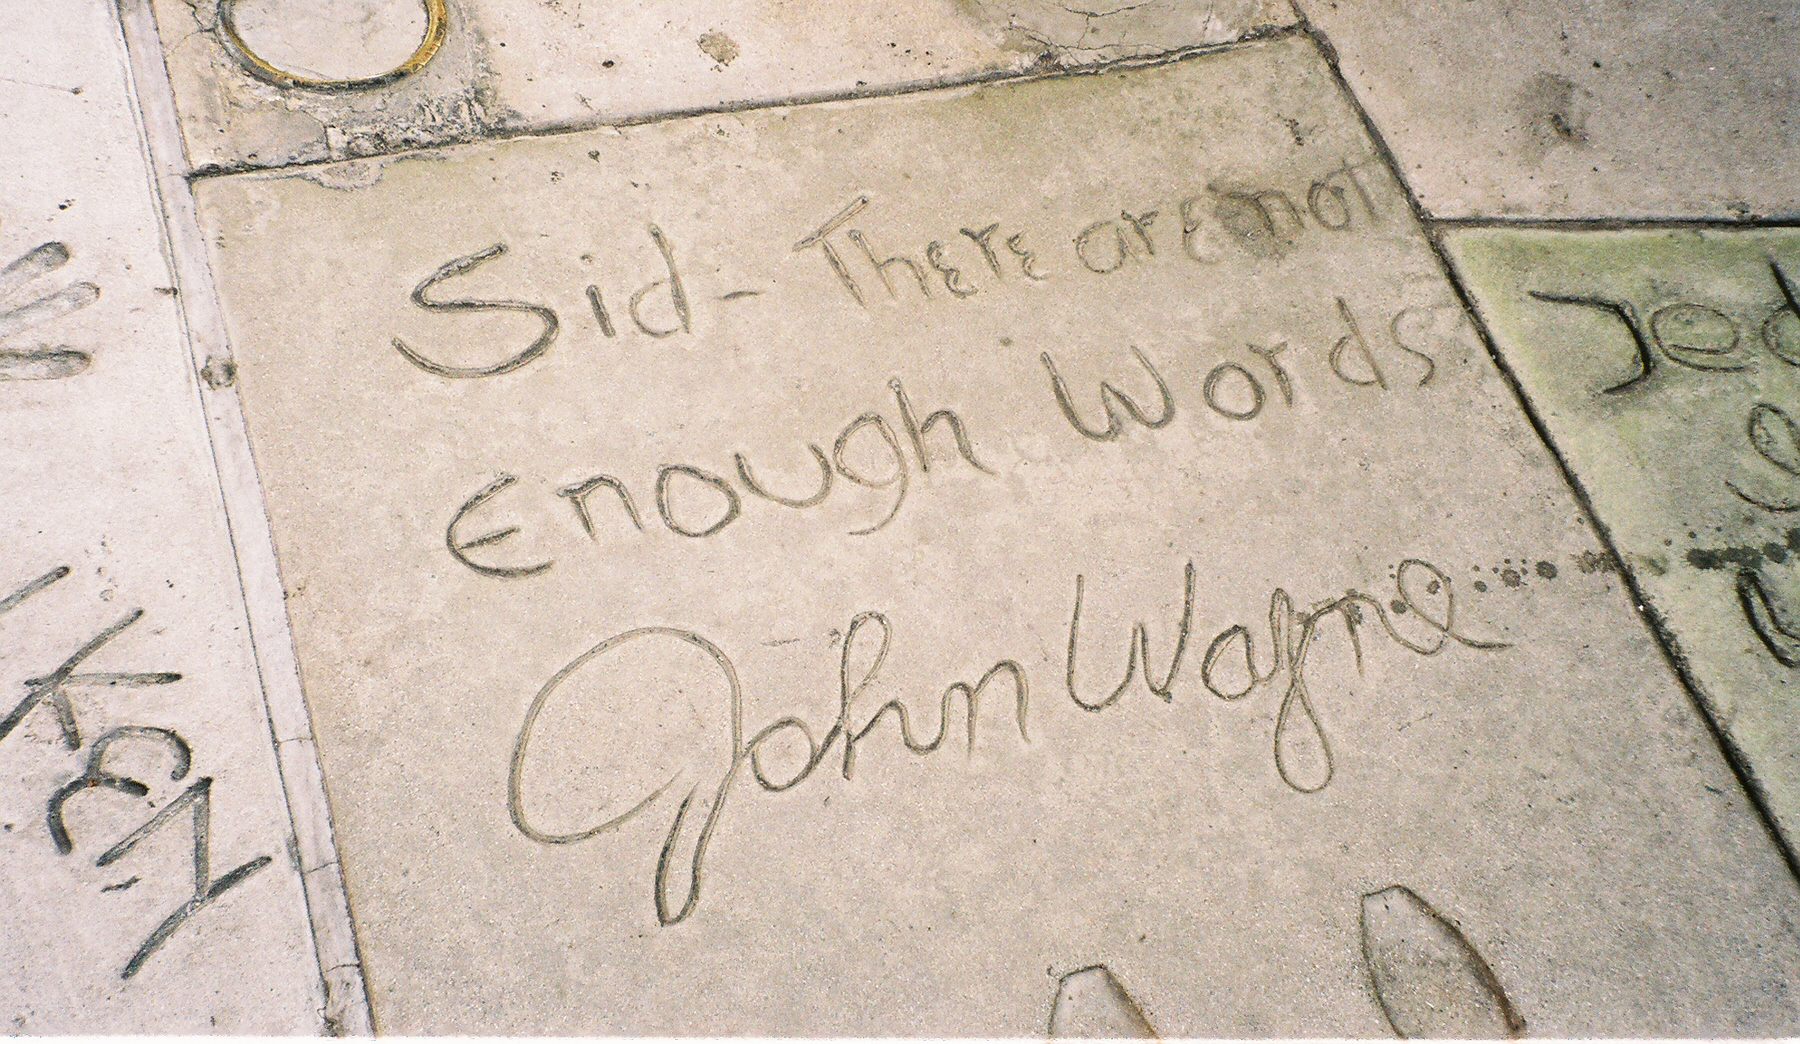 Sid - There are not
Enough Words
John Wayne